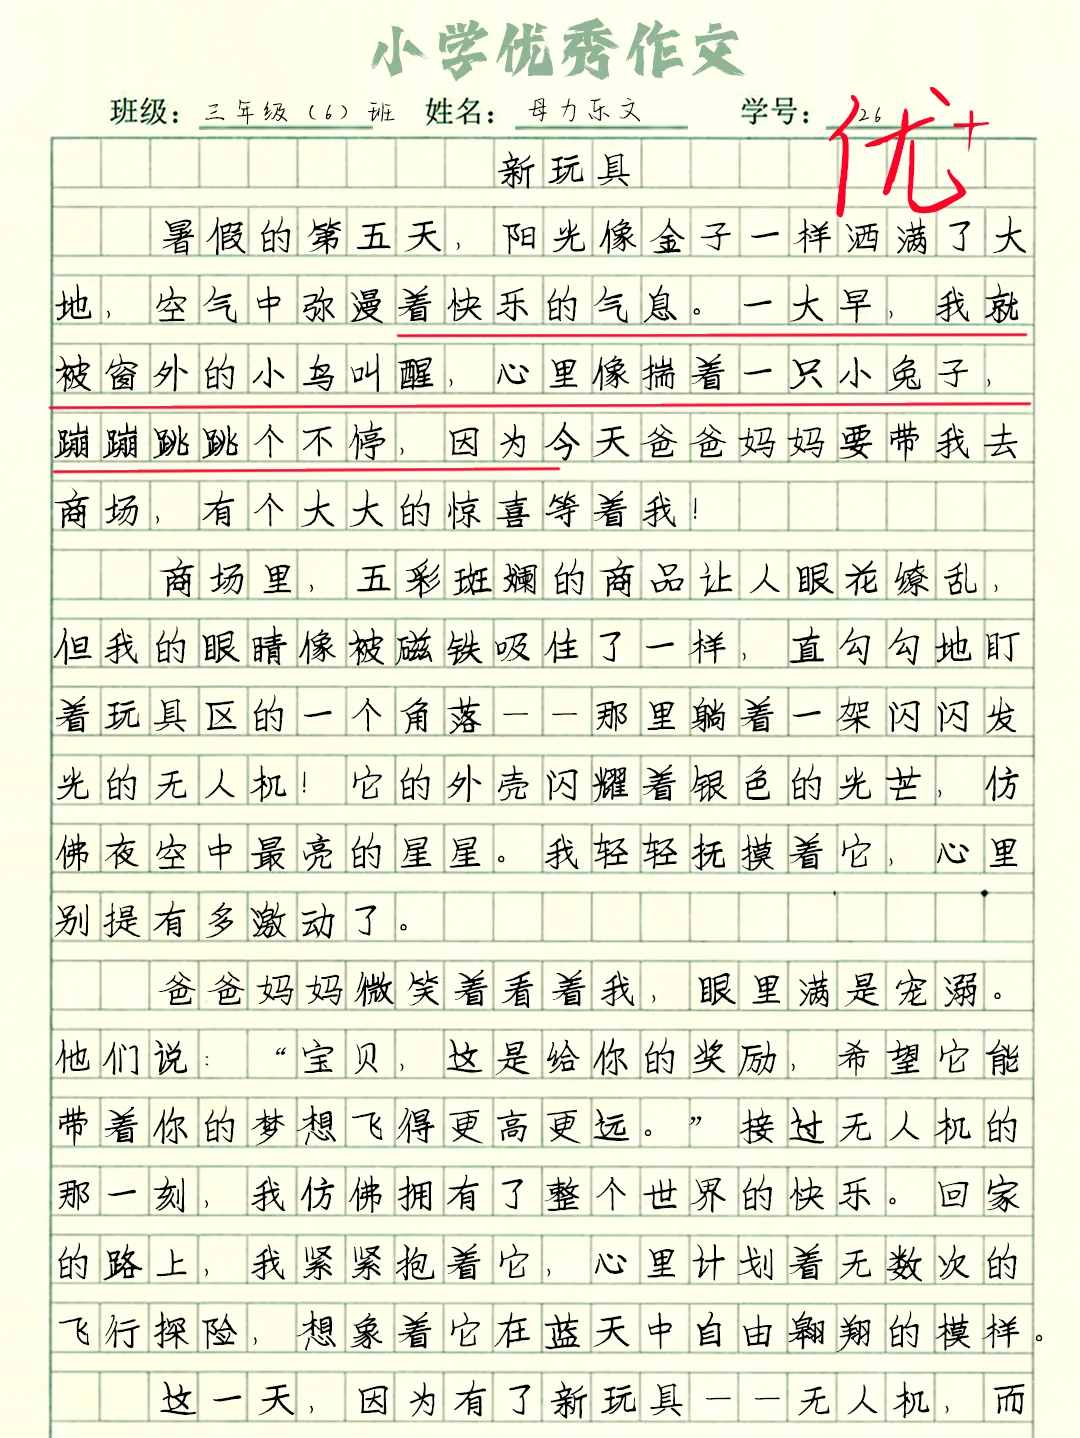 小学优秀作文
班级：三年级（6）班 姓名：母力乐文 学号：26
优+
新玩具
暑假的第五天，阳光像金子一样洒满了大
地，空气中弥漫着快乐的气息。一大早，我就
被窗外的小鸟叫醒，心里像揣着一只小兔子，
蹦蹦跳跳个不停，因为今天爸爸妈妈要带我去
商场，有个大大的惊喜等着我！
商场里，五彩斑斓的商品让人眼花缭乱，
但我的眼睛像被磁铁吸住了一样，直勾勾地盯
着玩具区的一个角落——那里躺着一架闪闪发
光的无人机！它的外壳闪耀着银色的光芒，仿
佛夜空中最亮的星星。我轻轻抚摸着它，心里
别提有多激动了。
爸爸妈妈微笑着看着我，眼里满是宠溺。
他们说：“宝贝，这是给你的奖励，希望它能
带着你的梦想飞得更高更远。”接过无人机的
那一刻，我仿佛拥有了整个世界的快乐。回家
的路上，我紧紧抱着它，心里计划着无数次的
飞行探险，想象着它在蓝天中自由翱翔的模样。
这一天，因为有了新玩具——无人机，而